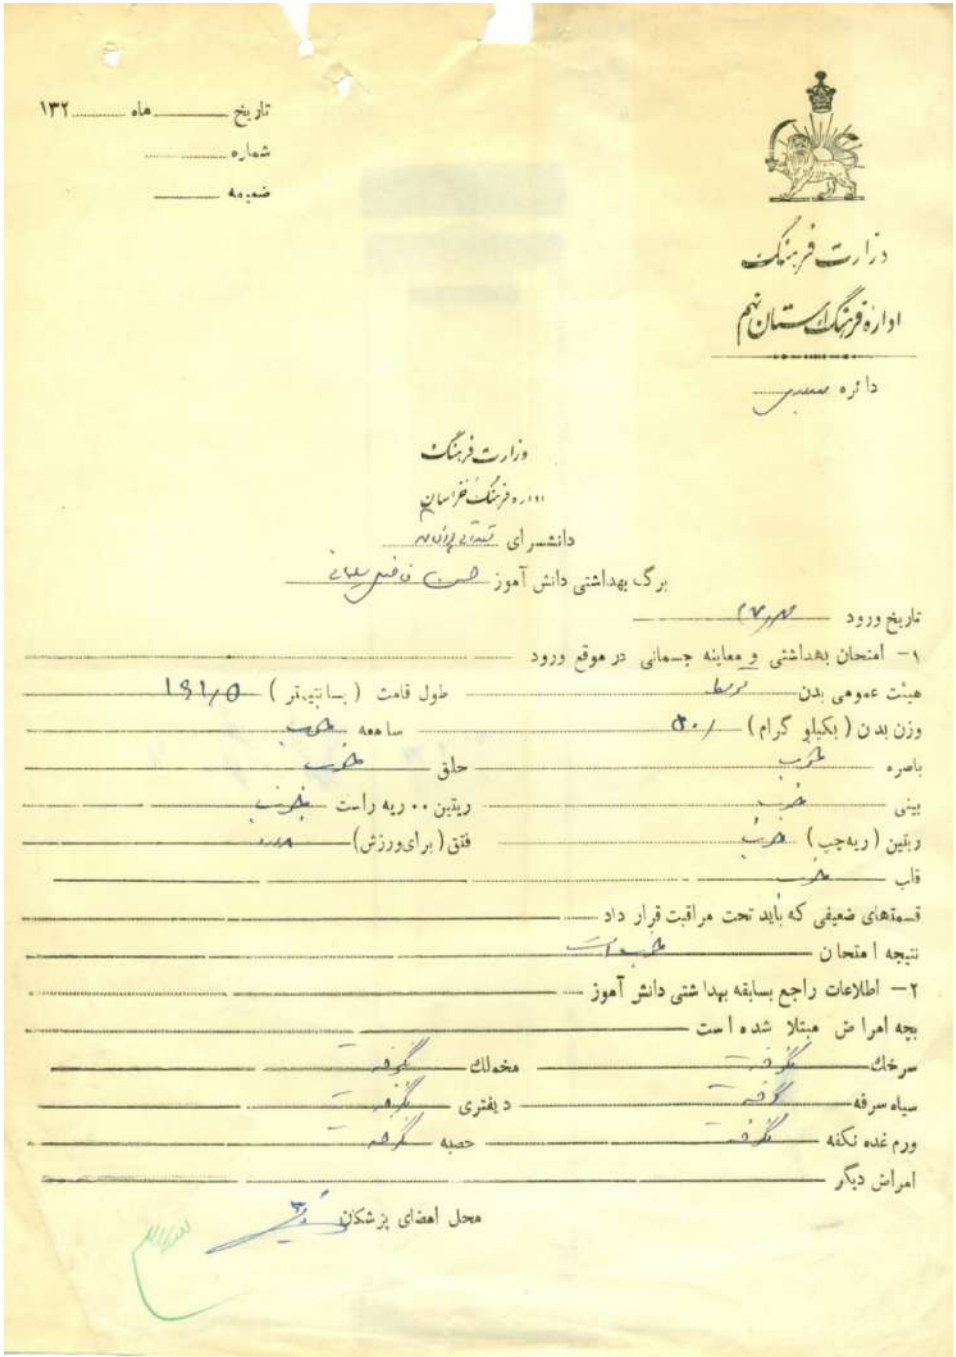 تاریخ ماه ۱۳۲
شماره
ضمیمه
وزارت فرهنگ
اداره فرهنگ استان نهم
دائره
وزارت فرهنگ
اداره فرهنگ خراسان
دانشسرای
برگ بهداشتی دانش آموز حسن
تاریخ ورود
۱- امتحان بهداشتی و معاینه جسمانی در موقع ورود
هیئت عمومی بدن متوسط طول قامت (بسانتیمتر) ۱۶۱/۵
وزن بدن (بکیلو گرام) سامعه خوب
باصره خوب حلق خوب
بینی خوب ریتین ۰۰ ریه راست خوب
ریتین (ریه چپ) خوب فتق (برای ورزش) ندارد
قلب خوب
قسمتهای ضعیفی که باید تحت مراقبت قرار داد
نتیجه امتحان خوب است
۲- اطلاعات راجع بسابقه بهداشتی دانش آموز
بچه امراض مبتلا شده است
سرخک نگرفته مخملک نگرفته
سیاه سرفه گرفته دیفتری نگرفته
ورم غده نکفه نگرفته حصبه نگرفته
امراض دیگر
محل امضای پزشکان